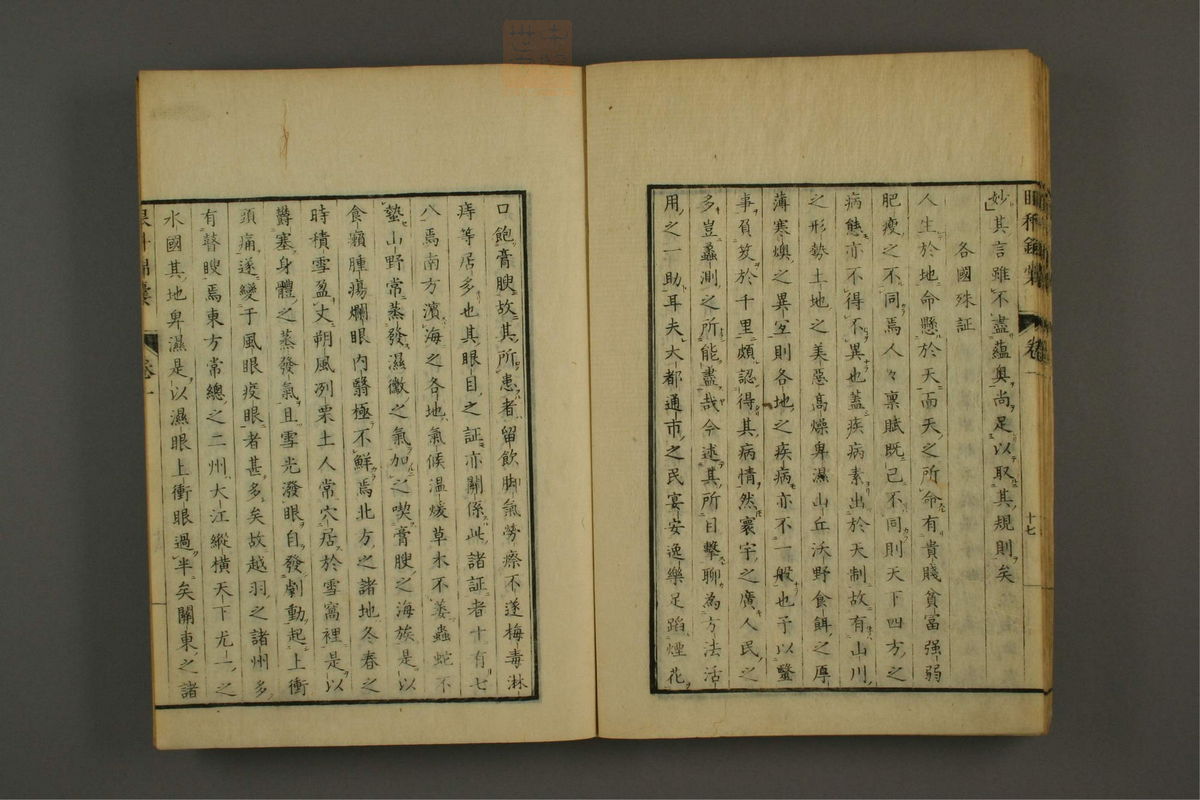 妙其言雖不盡蘊奥尚足以取其規則矣
各國殊証
人生於地命懸於天而天之所命有貴賤貧富强弱
肥瘦之不同焉人々稟賦既已不同則天下四方之
病態亦不得不異也蓋疾病素出於天制故有山川
之形勢土地之美惡高燥卑濕山丘沃野食餌之厚
薄寒燠之異宜則各地之疾病亦不一般也予以毉
事負笈於千里頗認得其病情然寰宇之廣人民之
多豈蠡測之所能盡哉今述其所目擊聊為方法活
用之一助耳夫大都通市之民宴安逸樂足蹈煙花
十七
口飽膏腴故其所患者留飲脚氣勞瘵不遂梅毒淋
痔等居多也其眼目之証亦關係此諸証者十有七
八焉南方濱海之各地氣候温煖草木不萎蟲蛇不
蟄山野常蒸發濕黴之氣加之喫膏腴之海族是以
食癩腫瘍爛眼内翳極不鮮焉北方之諸地冬春之
時積雪盈丈朔風冽栗土人常穴居於雪窩裡是以
欝塞身體之蒸發氣且雪光潑眼自發劇動起上衝
頭痛遂變于風眼疫眼者甚多矣故越羽之諸州多
有瞽瞍焉東方常總之二州大江縱橫天下尤一之
水國其地卑濕是以濕眼上衝眼過半矣關東之諸